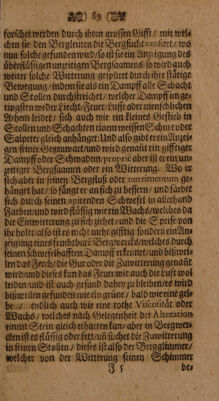 89
forschet werden durch ihren grossen Gifft / mit wel-
chen sie den Bergleuten die Bergsucht causiret / wo
nun solche gefunden wird / so ist sie ein Anzeigung des
überflüssigen unzeitigen Bergsaamens / so wird auch
weiter solche Witterung gespüret durch ihre stätige
Bewegung / indem sie als ein Dampff alle Schächt
und Stollen durchstreichet / welcher Dampff im ge-
ringsten weder Liecht / Feuer / Lufft oder menschlichen
Athem leidet / sich auch wie ein kleines Gestieb in
Stollen und Schachten einem weissen Schnee oder
Salpeter gleich anhänget. Und also gibt er ein Anzei-
gen seiner Gegenwart und wird genant ein gifftiger
Dampff oder Schwaden / proprié aber ist er ein un-
zeitiger Bergsaamen oder ein Witterung. Wo er
sich aber in seinen Bergklufft oder matrimonium ge-
hänget hat / so fängt er an sich zu bessern / und färbet
sich durch seinen agirenden Schwefel in allerhand
Farben und wird flüssig wie ein Wachs / welches da
die Einwitterung zu sich ziehet / und die Speise von
ihr holet / also ist es nicht mehr gifftig sondern ein An-
zeigung eines fruchtbarē Bergwercks / welches durch
einen schwefelhafften Dampff erkennet / und bißwei-
len das Ferch / die Gur oder die Zuwitterung genant
wird / und dieses kan das Feuer wie auch die Lufft wol
leiden / und ist auch gesund dabey zu bleiben / es wird
bißweilen gefunden wie ein grüne / bald wie eine gel-
be / endlich wie eine rothe Viscosität oder
Wachs / welches nach Gelegenheit der Alteration
einem Stein gleich erharten kan / aber in Bergwer-
cken ist es flüssig oder fett / und suchet die Zuwitterung
in seinen Stollen / dieses ist also der Bergglimmer /
welcher von der Witterung seinen Schimmer
F 5
be-